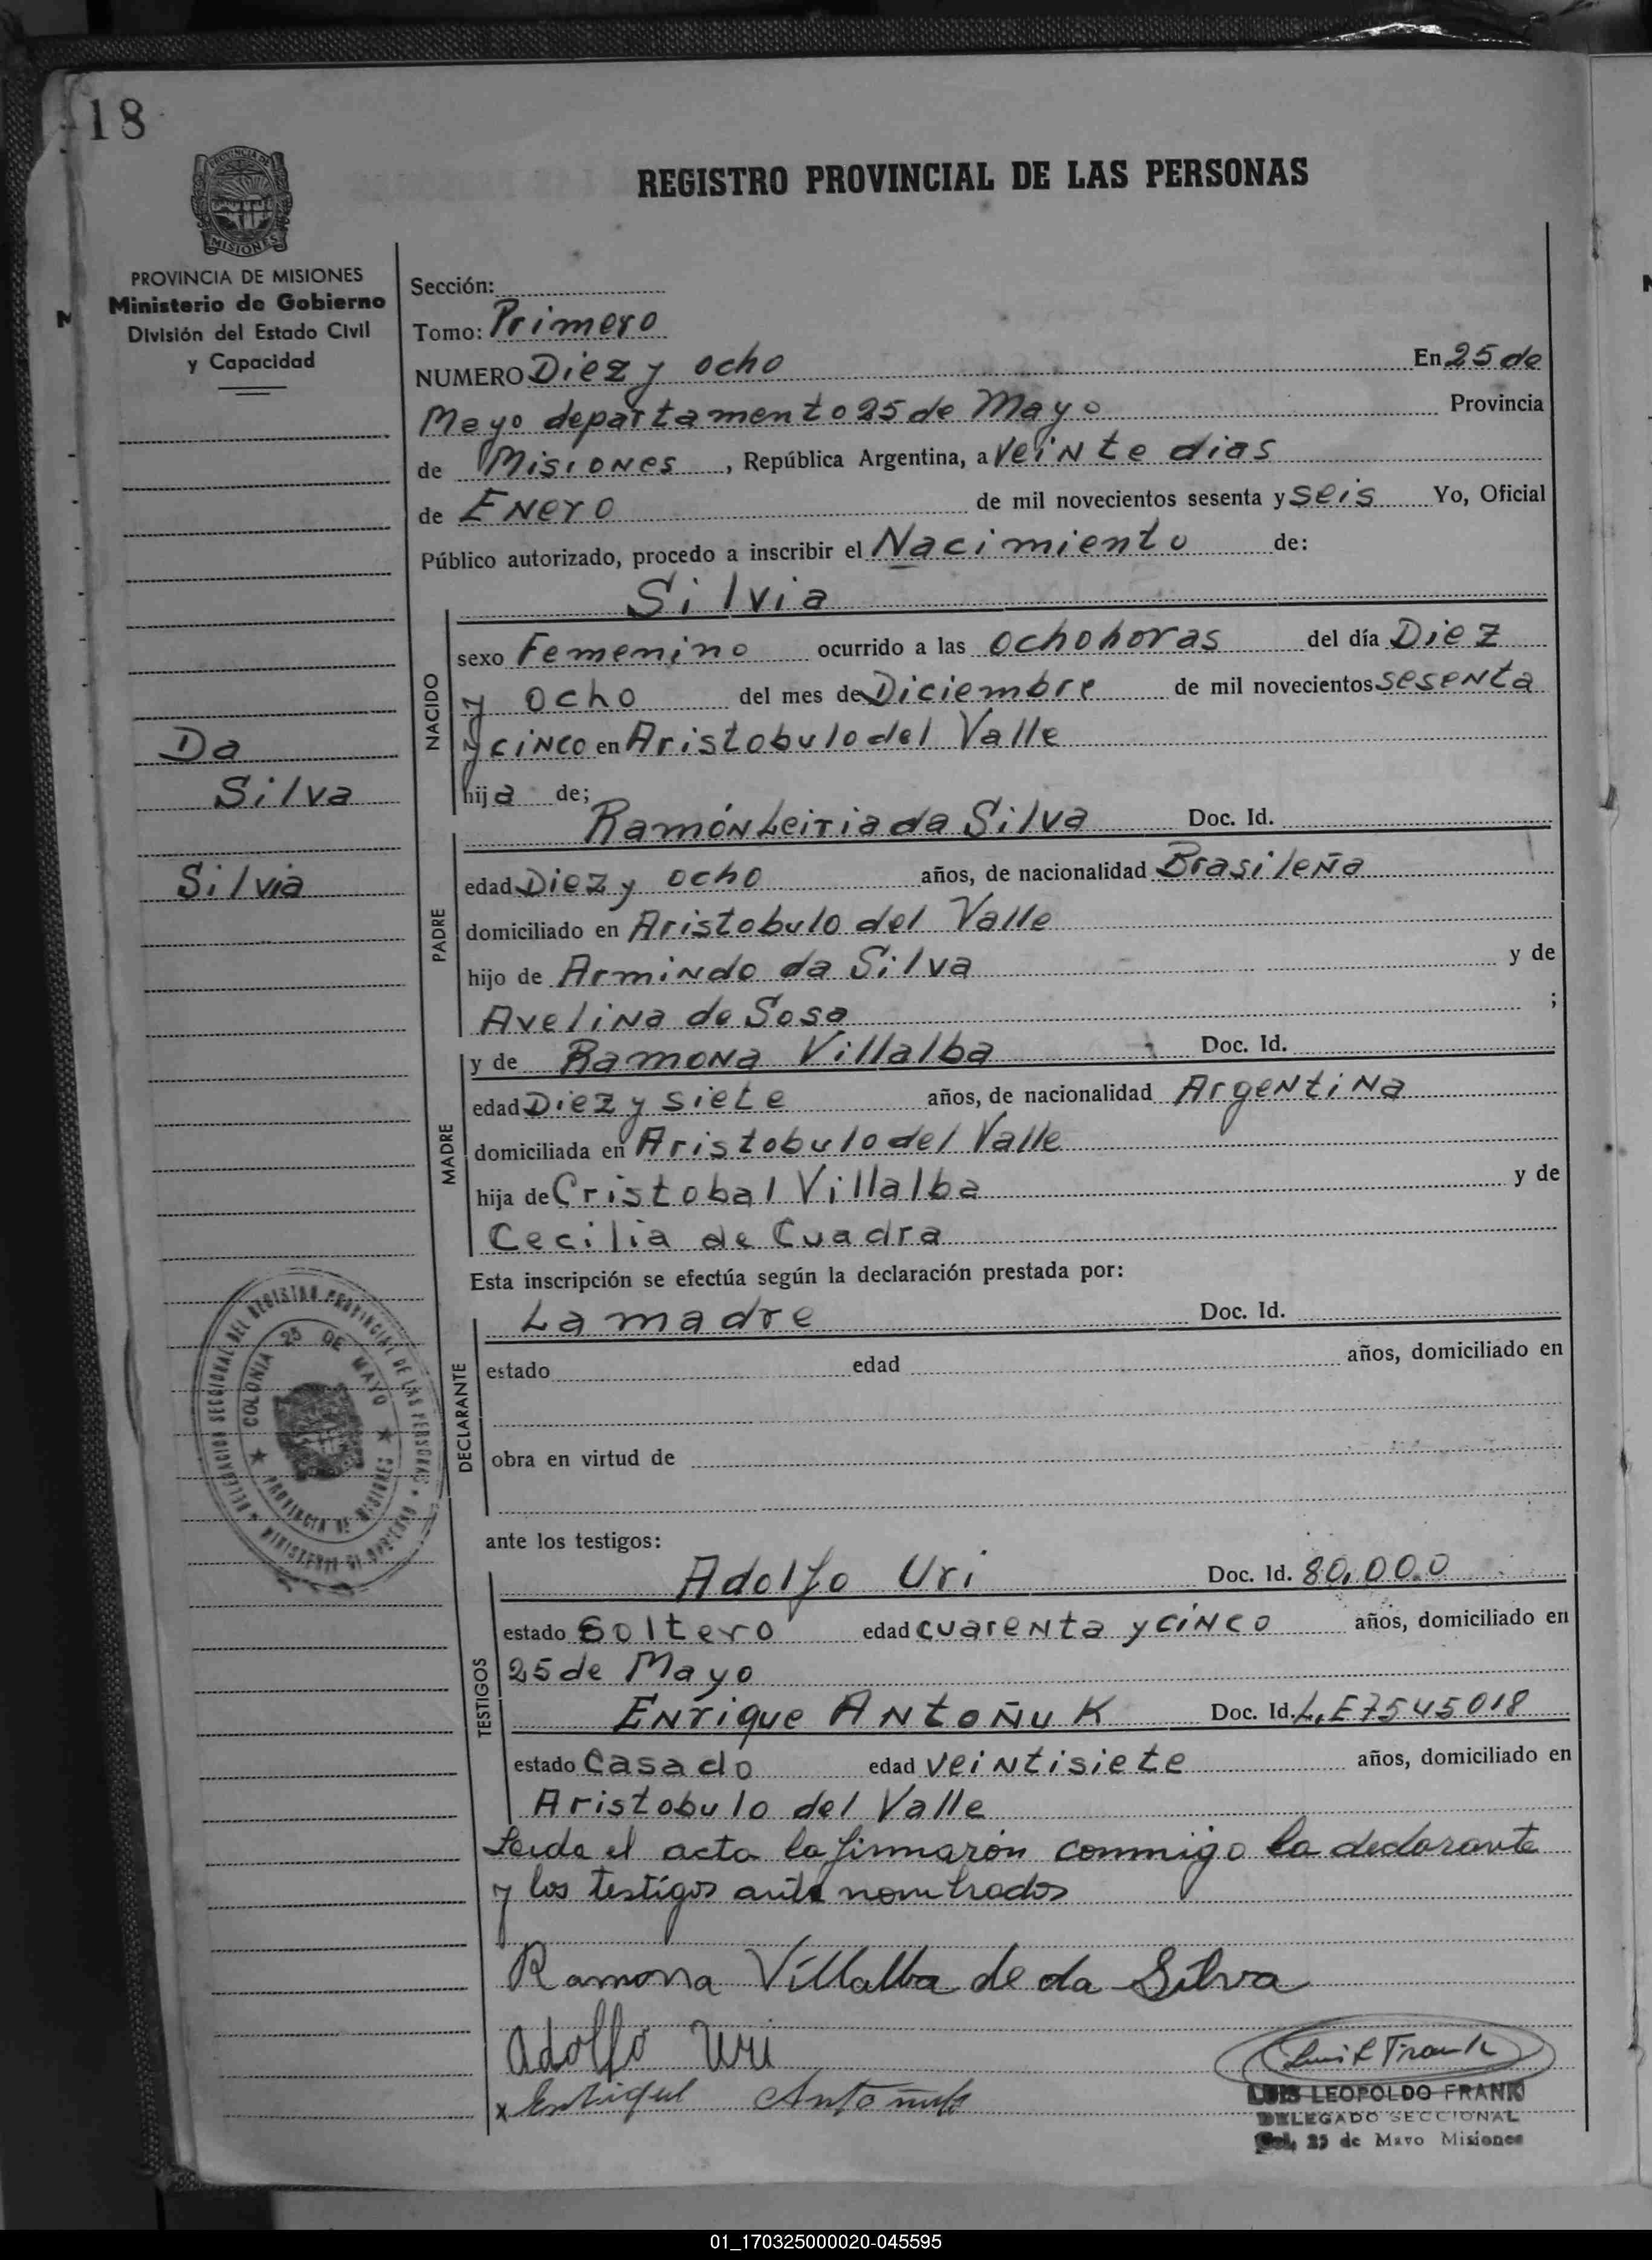 18
PROVINCIA DE
MISIONES
REGISTRO PROVINCIAL DE LAS PERSONAS
PROVINCIA DE MISIONES
Ministerio de Gobierno
División del Estado Civil
y Capacidad
Da
Silva
Silvia
Sección:
Tomo: Primero
NUMERO Diez y ocho En 25 de
Mayo departamento 25 de Mayo Provincia
de Misiones, República Argentina, a Veinte dias
de Enero de mil novecientos sesenta y seis Yo, Oficial
Público autorizado, procedo a inscribir el Nacimiento de:
Silvia
NACIDO
sexo Femenino ocurrido a las ocho horas del día Diez
y ocho del mes de Diciembre de mil novecientos sesenta
y cinco en Aristobulo del Valle
hija de;
Ramón Leiria da Silva Doc. Id.
PADRE
edad Diez y ocho años, de nacionalidad Brasileña
domiciliado en Aristobulo del Valle
hijo de Armindo da Silva y de
Avelina de Sosa ;
y de Ramona Villalba Doc. Id.
MADRE
edad Diez y siete años, de nacionalidad Argentina
domiciliada en Aristobulo del Valle
hija de Cristobal Villalba y de
Cecilia de Cuadra
Esta inscripción se efectúa según la declaración prestada por:
La madre Doc. Id.
DECLARANTE
estado edad años, domiciliado en
obra en virtud de
DELEGACION SECCIONAL DEL REGISTRO PROVINCIAL DE LAS PERSONAS
MINISTERIO DE GOBIERNO
COLONIA 25 DE MAYO
PROVINCIA DE MISIONES
ante los testigos:
Adolfo Uri Doc. Id. 80.000
TESTIGOS
estado Soltero edad cuarenta y cinco años, domiciliado en
25 de Mayo
Enrique Antoñuk Doc. Id. L.E 7545018
estado Casado edad veintisiete años, domiciliado en
Aristobulo del Valle
Leida el acta la firmarón conmigo la declarante
y los testigos ante nombrados
Ramona Villalba de da Silva
Adolfo Uri
x Enrique Antoñuk
Luis L Frank
LUIS LEOPOLDO FRANK
DELEGADO SECCIONAL
Col. 25 de Mayo Misiones
01_170325000020-045595